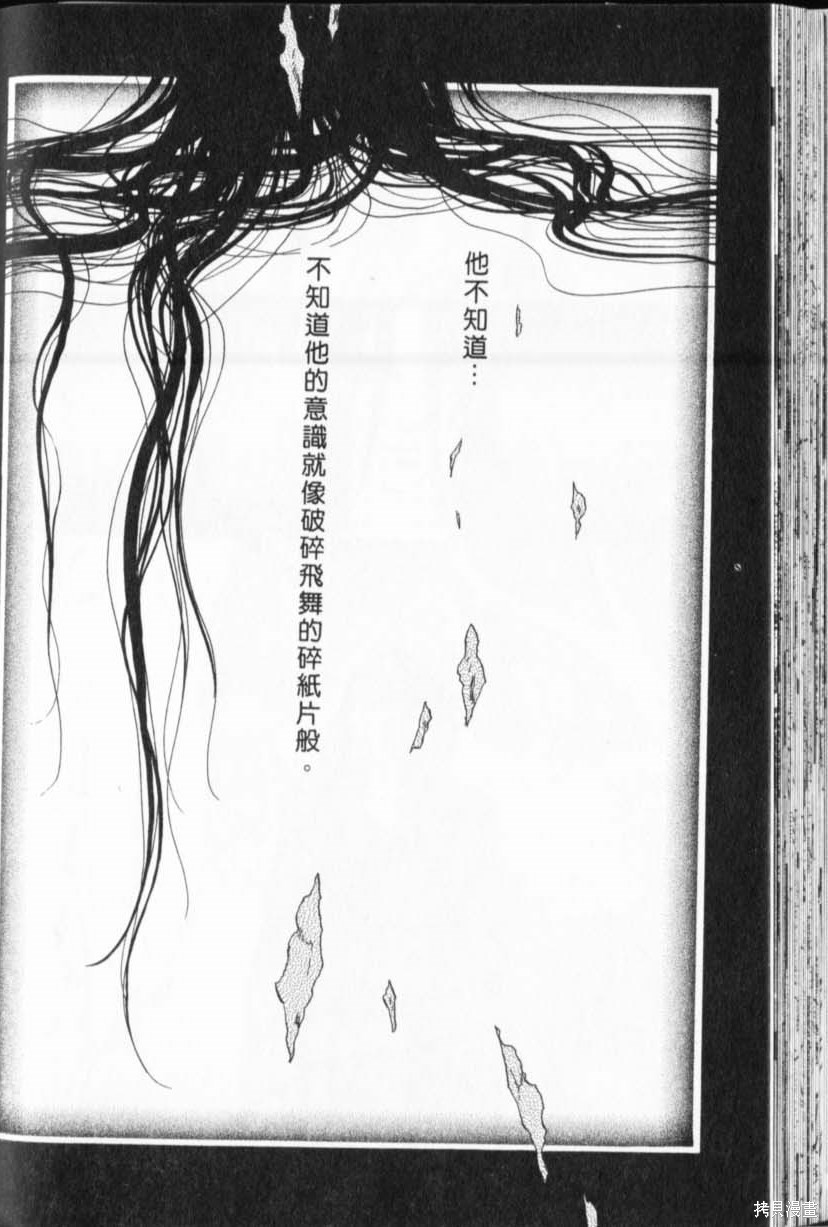 他不知道…
不知道他的意識就像破碎飛舞的碎紙片般。
拷貝漫畫